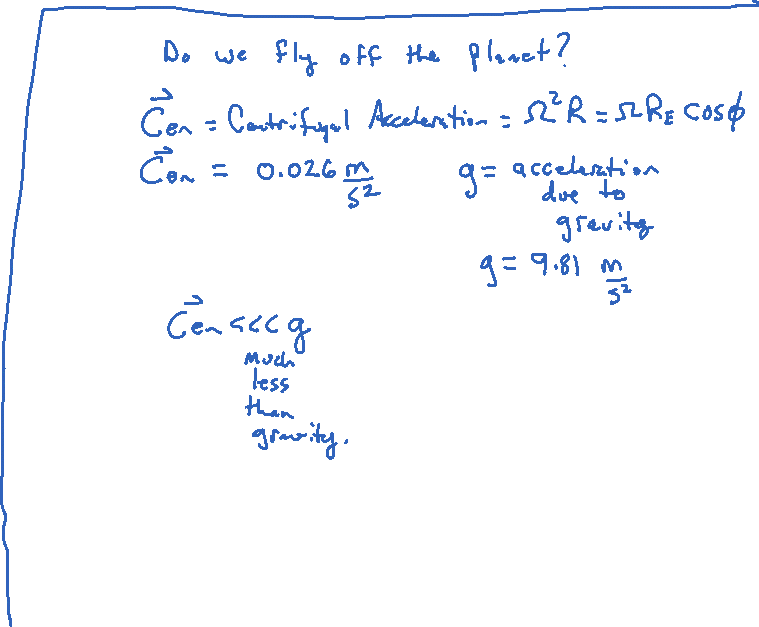 Do we fly off the planet?
C⃗en = Centrifugal Acceleration = Ω²R = ΩR_E cosϕ
C⃗en = 0.026 m/s²
g = acceleration
due to
gravity
g = 9.81 m/s²
C⃗en <<< g
much
less
than
gravity.